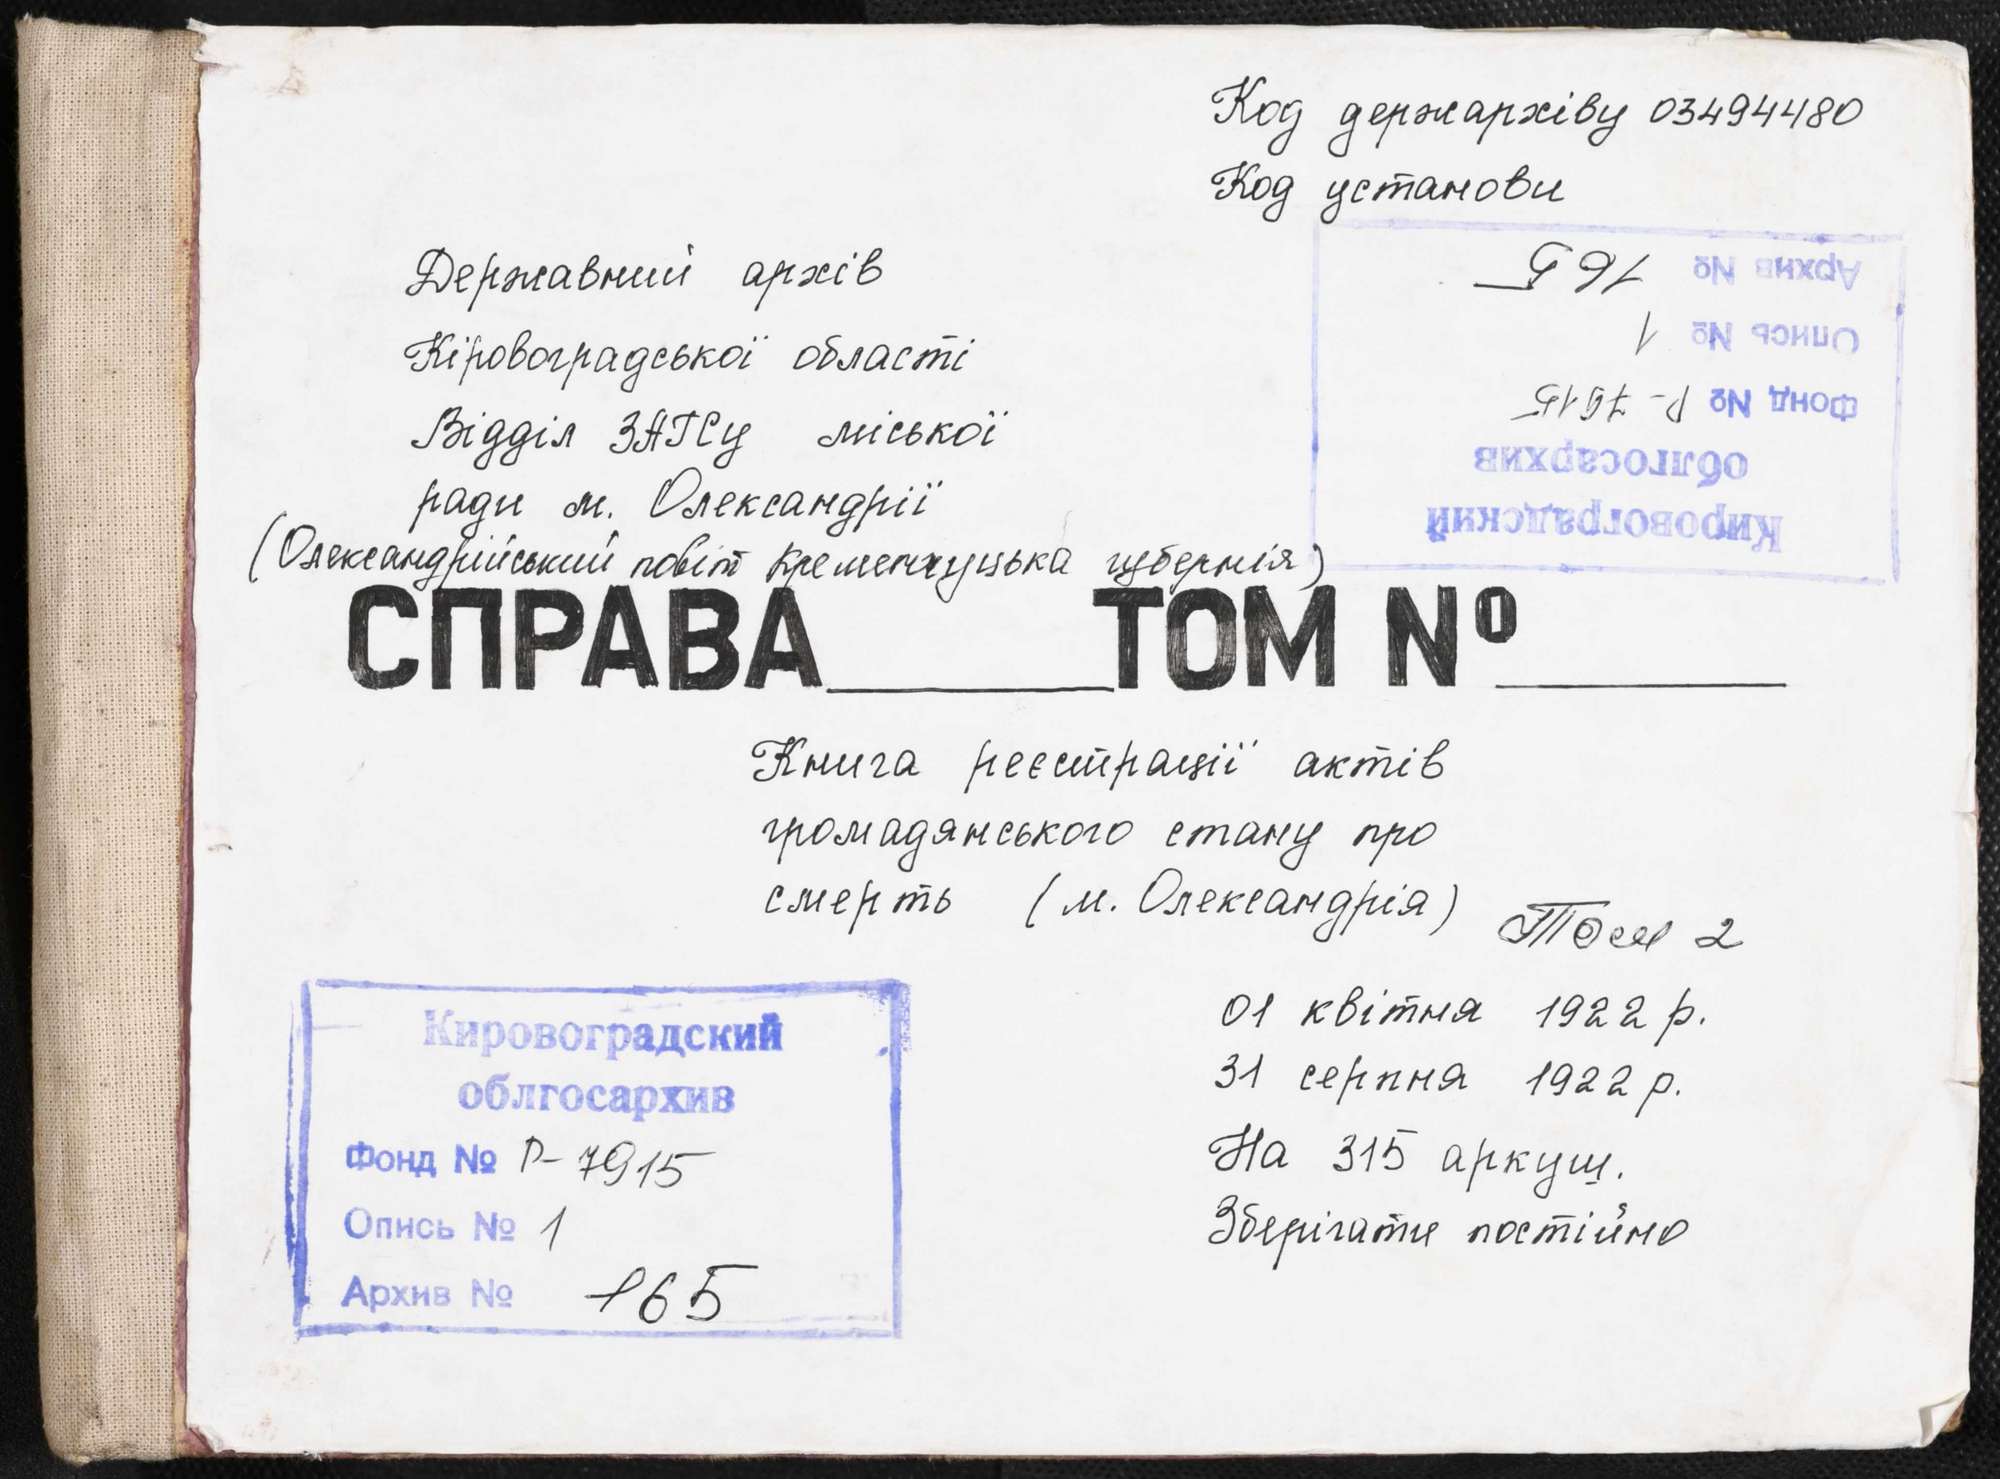 Код держархіву 03494480
Код установи
Державний архів
Кіровоградської області
Відділ ЗАГСу міської
ради м. Олександрії
(Олександрійський повіт Кременчуцька губернія)
Кировоградский
облгосархив
Фонд № Р-7915
Опись № 1
Архив № 165
СПРАВА ТОМ №
Книга реєстрації актів
громадянського стану про
смерть (м. Олександрія)
Том 2
01 квітня 1922 р.
31 серпня 1922 р.
На 315 аркуш.
Зберігати постійно
Кировоградский
облгосархив
Фонд № Р-7915
Опись № 1
Архив № 165